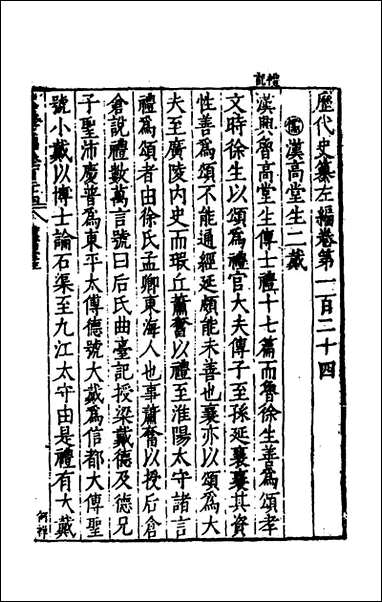 禮記
歷代史纂左編卷第一百二十四
儒漢高堂生二戴
漢興魯高堂生傳士禮十七篇而魯徐生善爲頌孝
文時徐生以頌爲禮官大夫傳子至孫延襄襄其資
性善爲頌不能通經延頗能未善也襄亦以頌爲大
夫至廣陵内史而瑕丘蕭奮以禮至淮陽太守諸言
禮爲頌者由徐氏孟卿東海人也事蕭奮以授后倉
倉說禮數萬言號曰后氏曲臺記授梁戴德及德兄
子聖沛慶普爲東平太傅德號大戴爲信都大傅聖
號小戴以博士論石渠至九江太守由是禮有大戴
何祥